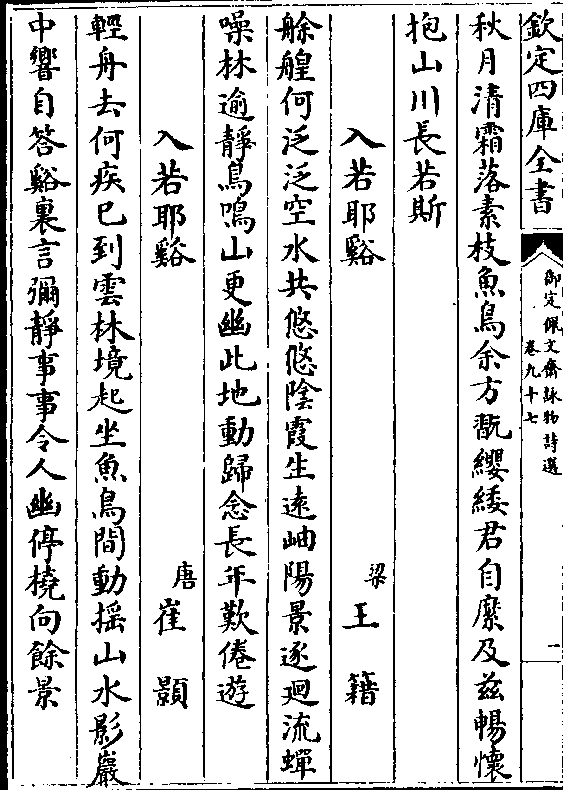 欽定四庫全書
御定佩文齋詠物詩選
卷九十七
一
秋月清霜落素枝魚鳥余方翫纓緌君自縻及茲暢懷
抱山川長若斯
入若耶谿 梁 王籍
艅艎何泛泛空水共悠悠陰霞生遠岫陽景逐廻流蟬
噪林逾靜鳥鳴山更幽此地動歸念長年歎倦遊
入若耶谿 唐 崔顥
輕舟去何疾已到雲林境起坐魚鳥間動搖山水影巖
中響自答谿裏言彌靜事事令人幽停橈向餘景